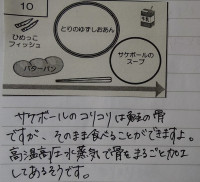 10
ひめっこ
フィッシュ
とりのゆずしおあん
サケボールの
スープ
バターパン
サケボールのコリコリは鮭の骨
ですが、そのまま食べることができますよ。
高温高圧水蒸気で骨をまるごと加工
してあるそうです。